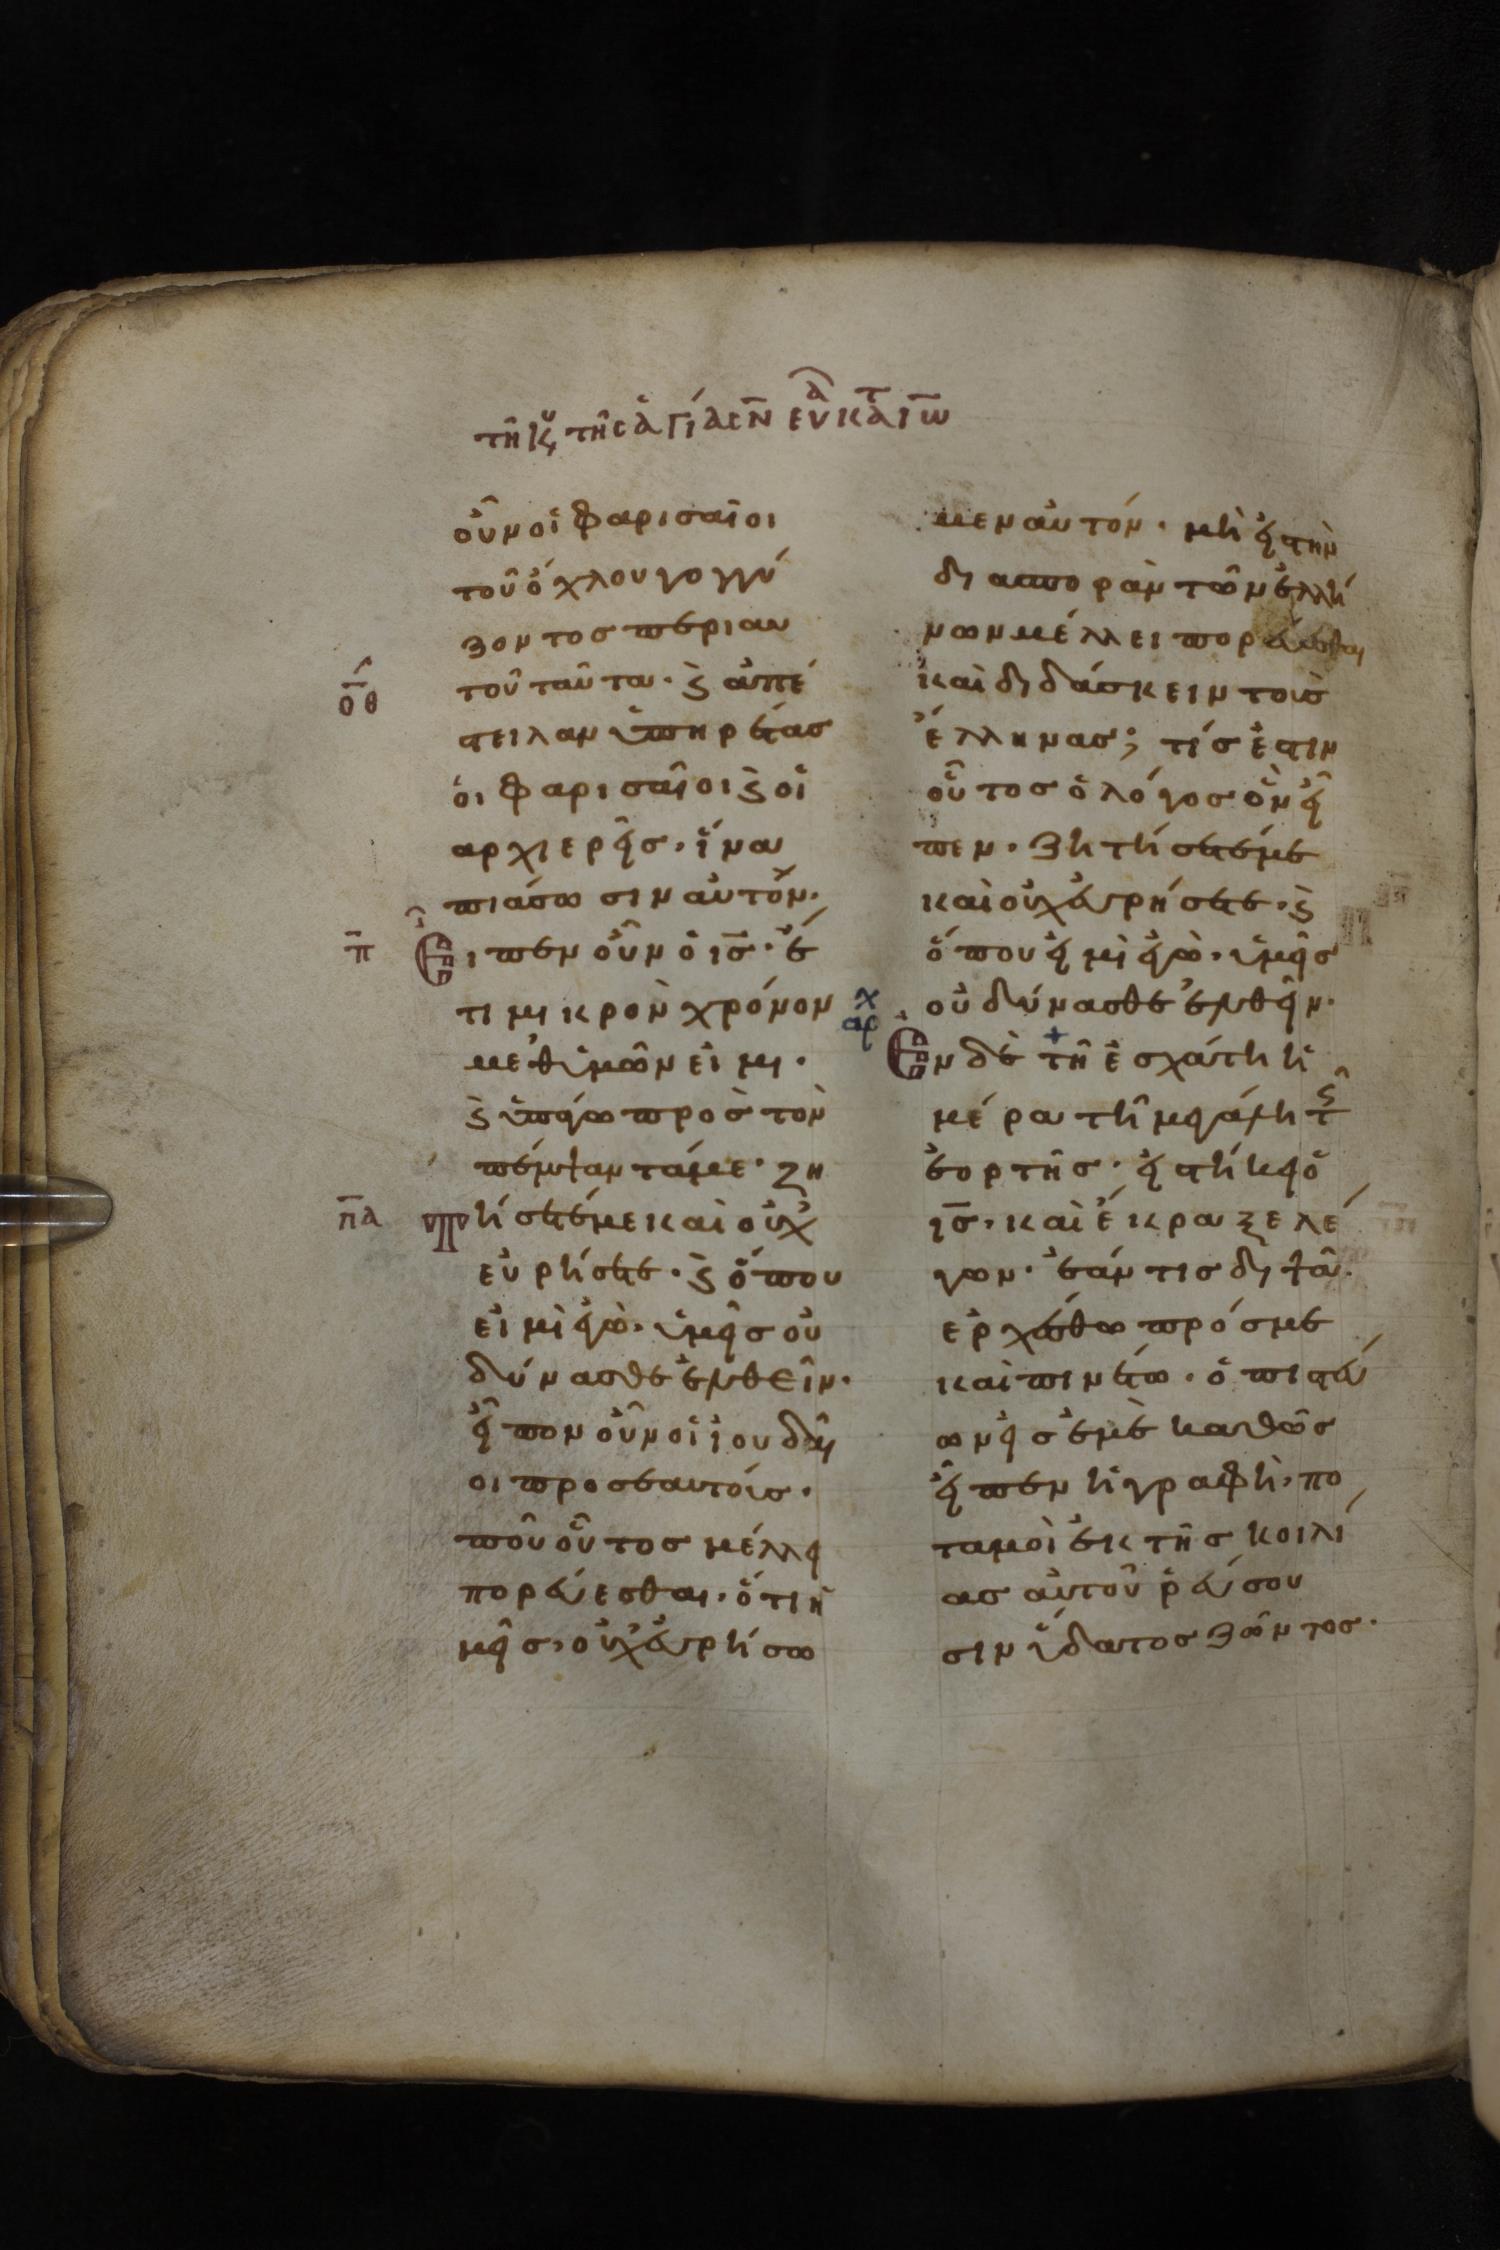 τῆ κυ τῆς ἁγίας ν̅ ευα κατ ιω̅
οὖν οἱ φαρισαῖοι
τοῦ ὄχλου γογγύ
ζοντος περι αυ
τοῦ ταῦτα· ϗ ἀπέ
ο̅θ̅
στειλαν ὑπηρέτας
ὁι φαρισαῖοι ϗ οἱ
αρχιερεῖς, ἵνα
πιάσωσιν αὐτὸν.
π̅
Ειπεν οὖν ὁ ις̅· ἔ
τι μικρὸν χρόνον
μεθ ὑμῶν εἰμι·
ϗ ὑπάγω προς τὸν
πέμψαντά με· ζη
π̅α̅
τήσετέ με καὶ οὐχ
εὑρήσετε· ϗ ὅπου
εἰμὶ ἐγὼ· ὑμεῖς οὐ
δύνασθε ἐλθεῖν·
εἶπον οὖν οἱ ἰουδαῖ
οι προς εαυτόις·
ποῦ οὗτος μέλλει
πορεύεσθαι, ὅτι ἡ
μεῖς, οὐχ ἑυρήσο
μεν αὐτόν· μὴ εἰς τὴν
διασπορὰν τῶν ἑλλή
νων μέλλει πορεύεσθαι
καὶ διδάσκειν τοὺς
ἕλληνας; τίς ἐστιν
οὗτος ὁ λόγος ὃν εἶ
πεν· ζητήσετέ με
καὶ οὐχ ἑυρήσετε· ϗ
ὅπου εἰμὶ ἐγὼ· ὑμεῖς
οὐ δύνασθε ἐλθεῖν·
χ
αρ
Εν δὲ τῆ ἐσχάτη ἡ
μέρα τῆ μεγάλη τῆς
ἑορτῆς· εἱστήκει ὁ
ις̅, καὶ ἔκραξε λέ
γων· ἐάν τις διψᾶ·
ερχέσθω πρός με
καὶ πινέτω· ὁ πιστεύ
ων εἰς ἐμὲ καθὼς
εἶπεν ἡ γραφὴ, πο
ταμοὶ ἐκ τῆς κοιλί
ας αὐτοῦ ῥεύσου
σιν ὕδατος ζῶντος·